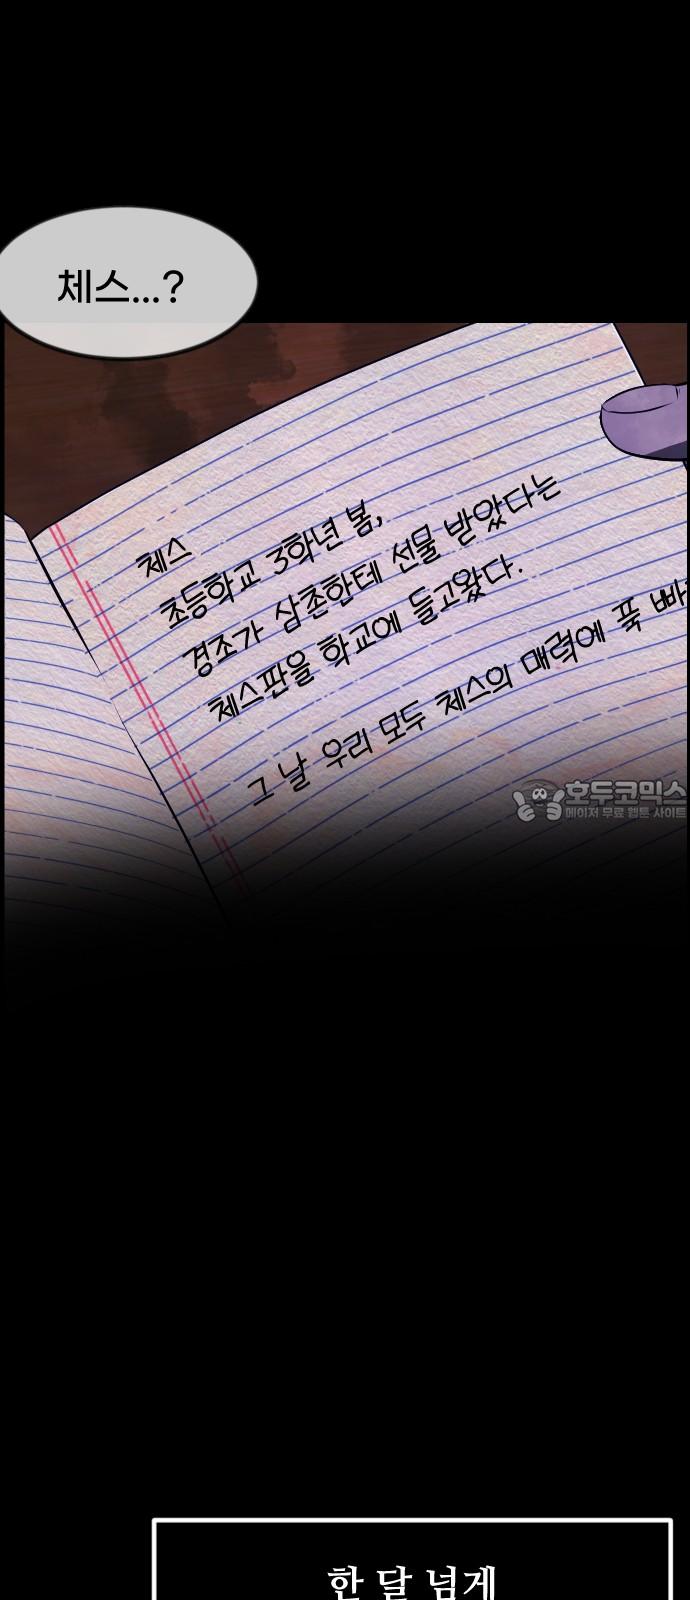 체스...?
체스
초등학교 3학년 봄,
경조가 삼촌한테 선물 받았다는
체스판을 학교에 들고왔다.
그 날 우리 모두 체스의 매력에 푹 빠
호두코믹스
에이저 무료 웹툰 사이트
한 달 넘게